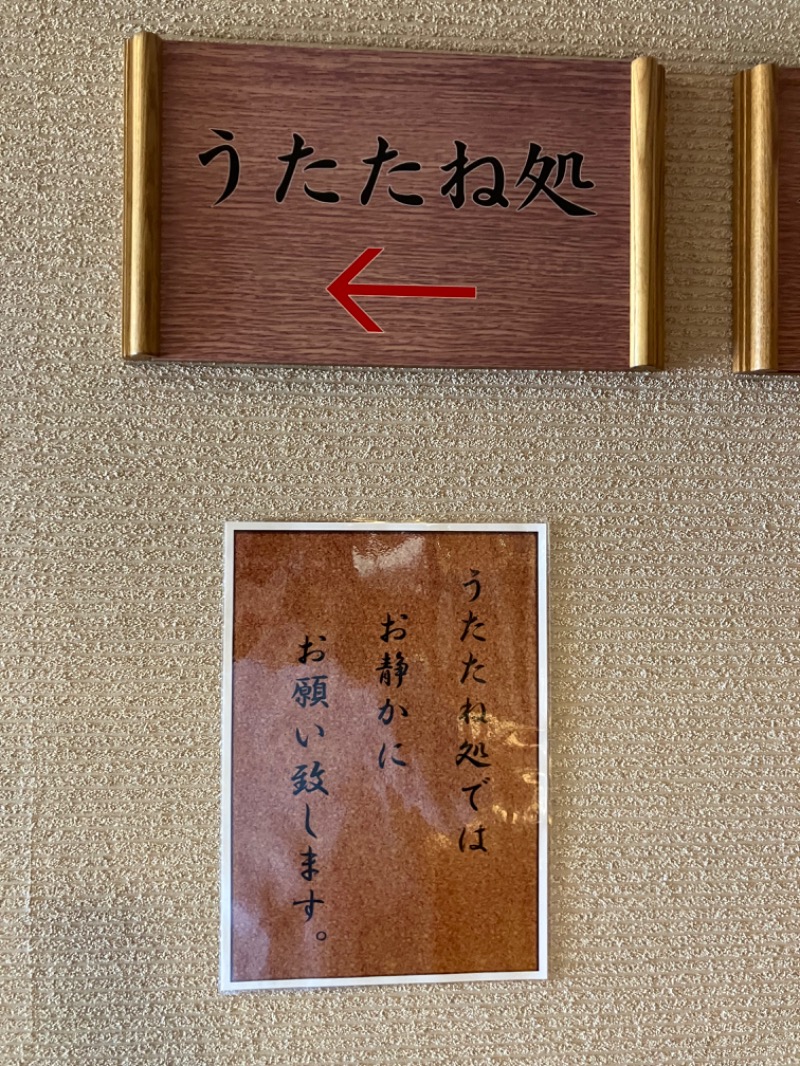 うたたね処
うたたね処では
お静かに
お願い致します。